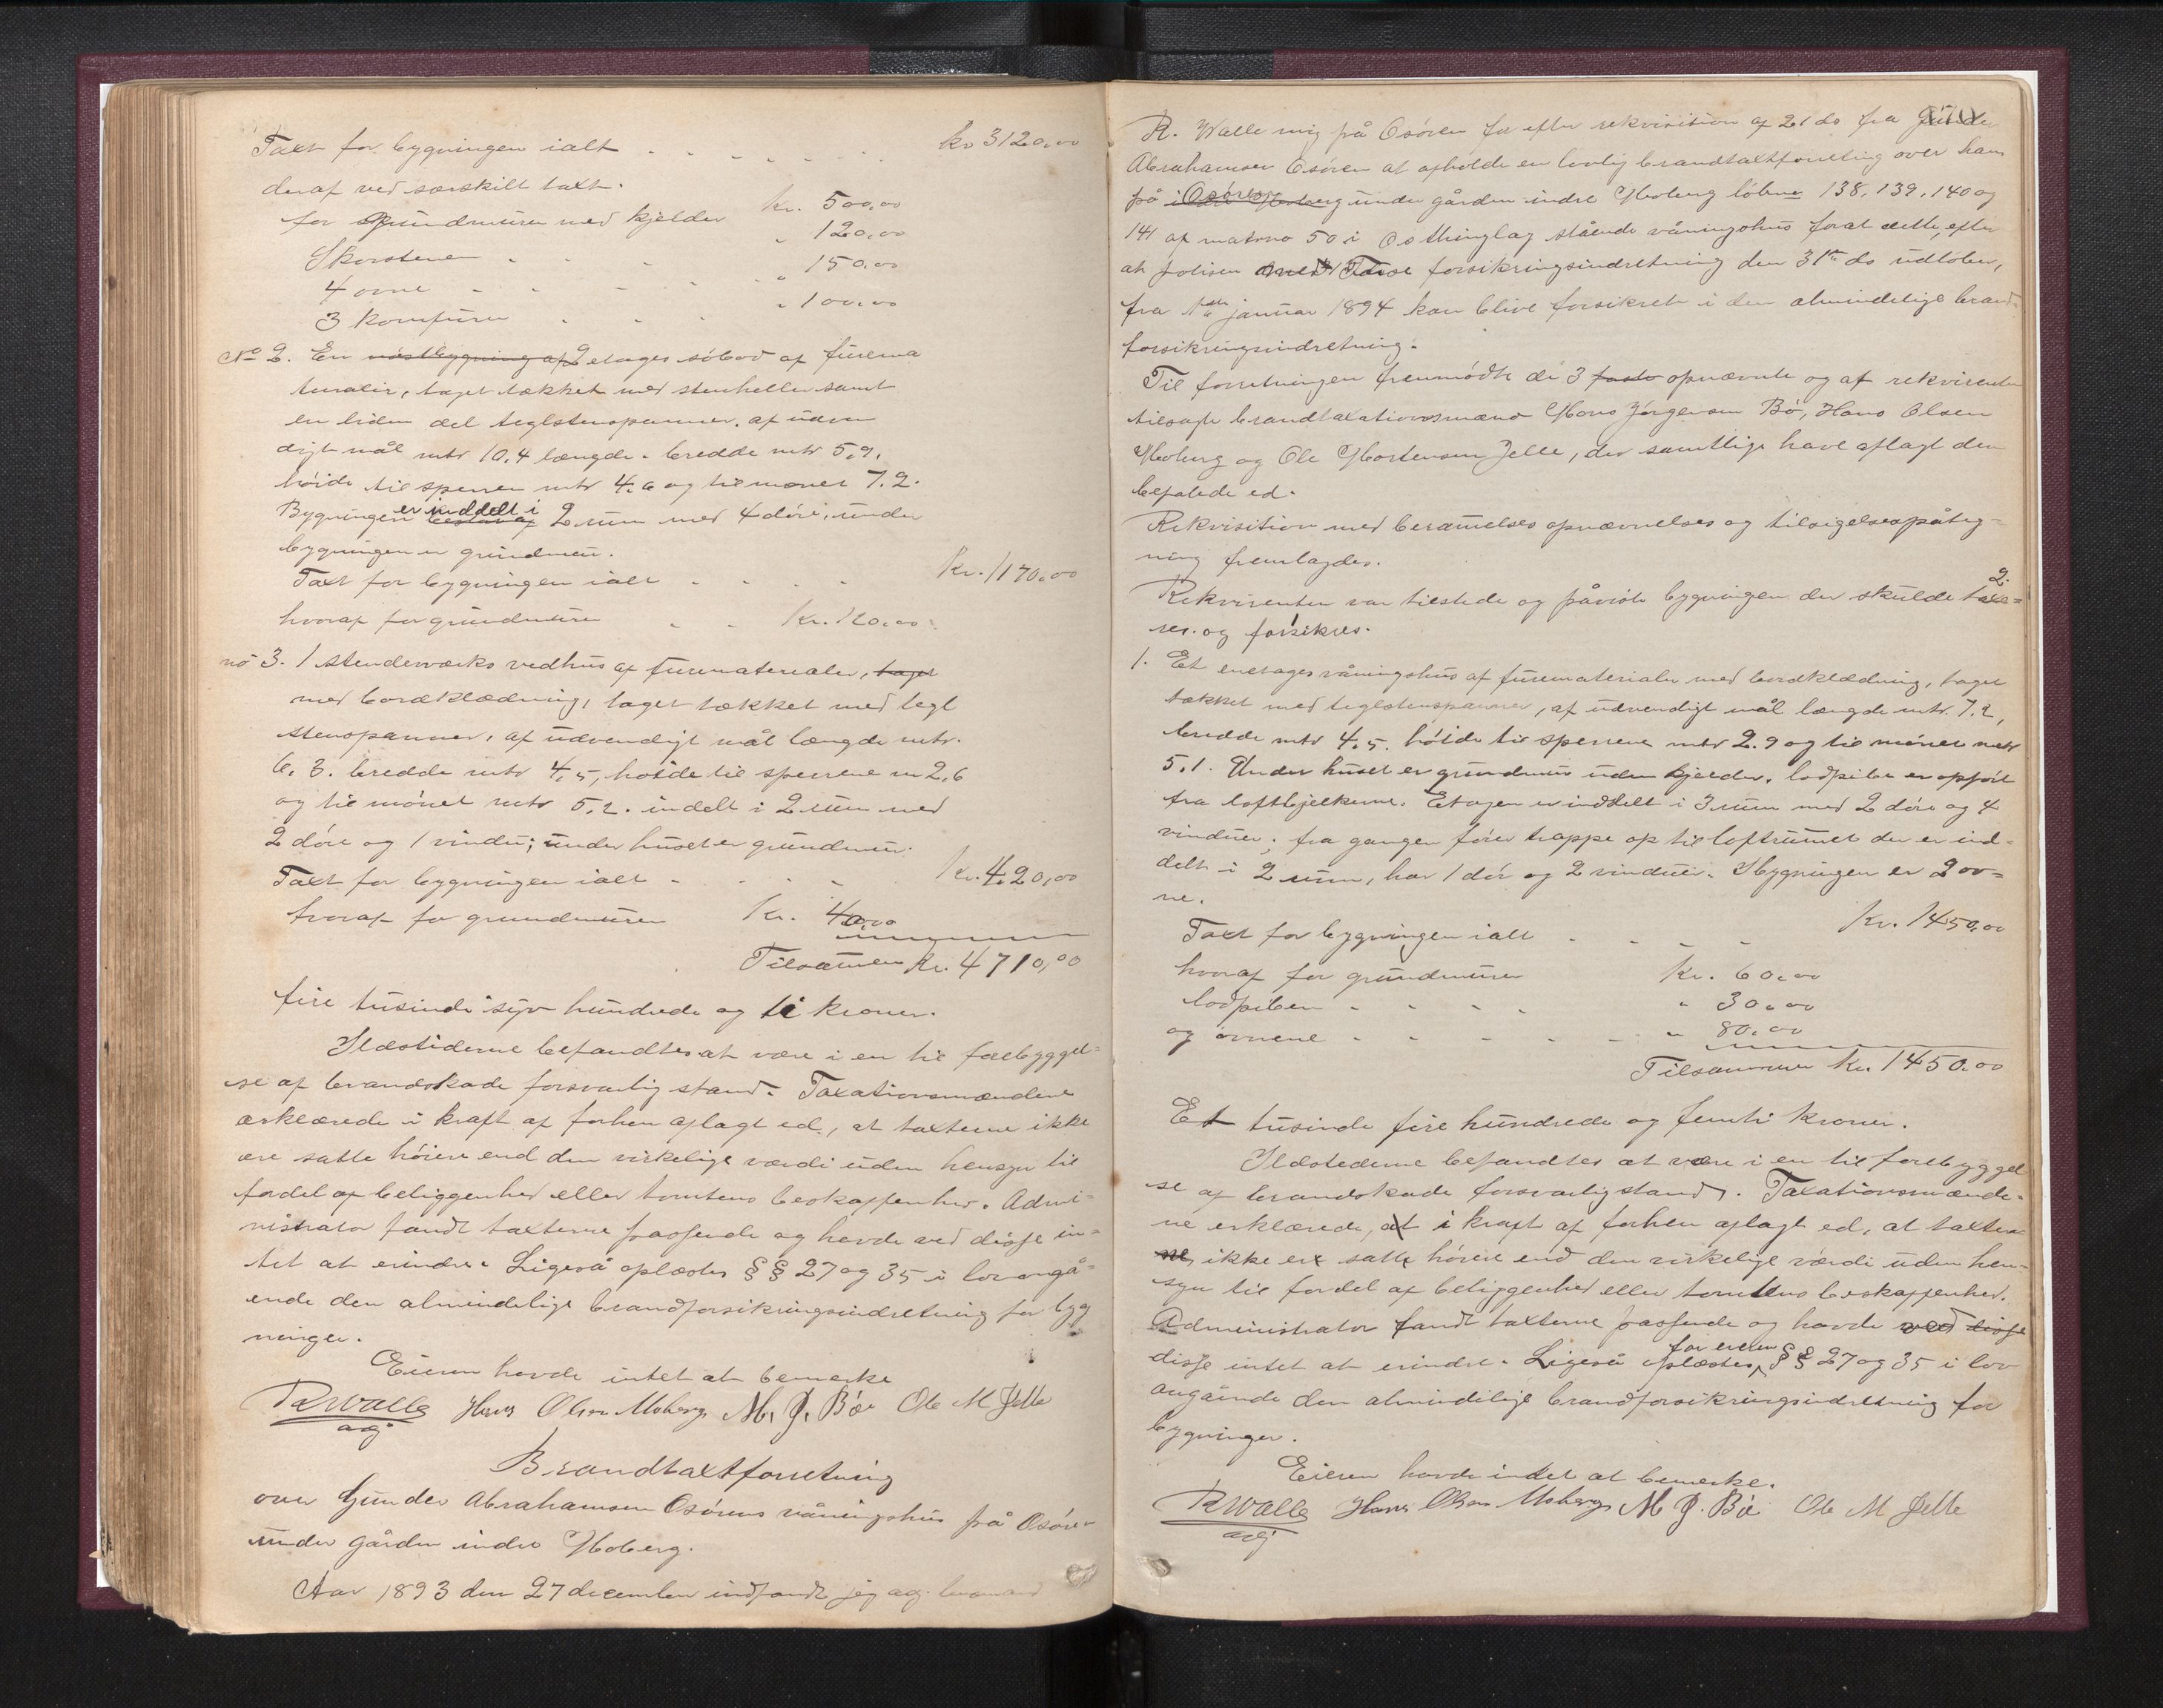 Taxt for bygningen ialt . . . . . . . kr 3120,00
deraf ved særskilt taxt.
for grundmuren med kjelder kr. 500,00
Skorstene . . . " 120,00
4 ovne . . . . " 150,00
3 komfurer . . . " 100,00
No 2. En nøstbygning af 2 etages søbod af furema
terialer, taget tækket med stenheller samt
en liden del teglstenspanner, af udven
digt mål mtr 10,4 længde. bredde mtr 5,9,
høide til sperrer mtr 4,6 og til mønet 7.2.
Bygningen bestaar af er inddelt i 2 rum med 4 døre, under
bygningen er grundmur.
Taxt for bygningen ialt . . . . Kr. 1170,00
hvoraf for grundmuren . . Kr. 120,00.
no 3. 1 stenderværks vedhus af furematerialer, taget
med bordklædning, taget tækket med tegl
stenspanner, af udvendigt mål længde mtr.
6,3. bredde mtr 4,5, høide til sperrene m 2,6
og til mønet mtr 5,2. indelt i 2 rum med
2 døre og 1 vindu; under huset er grundmur.
Taxt for bygningen ialt . . . . Kr. 420,00
hvoraf for grundmuren Kr. 40,00
Tilsamen Kr. 4710,00
fire tusinde syv hundrede og ti kroner.
Ildstederne befandtes at være i en til forebyggel=
se af brandskade forsvarlig stand. Taxationsmændene
erklærede i kraft af forhen aflagt ed, at taxterne ikke
ere satte høiere end den virkelige værdi uden hensyn til
fordel af beliggenhed eller tomtens beskaffenhed. Admi=
nistrator fandt taxterne passende og havde ved disse in=
tet at erindre. Ligeså oplæstes § § 27 og 35 i lov angå=
ende den almindelige brandforsikringsindretning for byg
ninger.
Eieren havde intet at bemerke
R Walle Hans Olsen Moberg M. J. Bø Ole M Jelle
adj
Brandtaxtforretning
over Gunder Abrahamsen Osørens våningshus på Osøren
under gården indre Moberg.
Aar 1893 den 27 december indfandt jeg adj. lensmand
R. Walle mig på Osøren for efter rekvisition af 21 ds fra Gunder
Abrahamsen Osøren at afholde en lovlig brandtaxtforretning over hans
på i Osøren under gården indre Moberg løbno 138, 139, 140 og
141 af matrno 50 i Os thinglag stående våningshus forat dette, efter
at polisen med forsikringsindretning den 31te ds udløber,
fra 1ste januar 1894 kan blive forsikret i den almindelige brand=
forsikringsindretning.
Til forretningen fremmødte de 3 faste opnævnte og af rekvirenten
tilsagte brandtaxationsmænd Mons Jørgensen Bø, Hans Olsen
Moberg og Ole Mortensen Jelle, der samtlige have aflagt den
befalede ed.
Rekvisition med beramelses opnævnelses og tilsigelsespåteg=
ning fremlagdes.
Rekvirenten var tilstede og påviste bygningen der skulde taxe=
res 2. og forsikres 1.
1. Et enetages våningshus af furematerialer med bordklædning, taget
tækket med teglstenspanner, af udvendigt mål længde mtr. 7,2,
bredde mtr 4,5. høide til sperrene mtr 2.9 og til mønet mtr
5,1. Under huset er grundmur uden kjelder. lodpibe er opført
fra loftbjelkerne. Etagen er inddelt i 3 rum med 2 døre og 4
vinduer; fra gangen fører trappe op til loftrummet der er ind=
delt i 2 rum, har 1 dør og 2 vinduer. I bygningen er 2 ov=
ne.
Taxt for bygningen ialt . . . . Kr. 1450,00
hvoraf for grundmuren Kr. 60,00
lodpiben . . . . " 30,00
og ovnene . . . . . " 80,00
Tilsammen Kr. 1450,00
Et tusinde fire hundrede og femti kroner.
Ildstederne befandtes at være i en til forebyggel
se af brandskade forsvarlig stand. Taxationsmænde=
ne erklærede, at i kraft af forhen aflagt ed, at taxten
ne, ikke er satte høiere end den virkelige værdi uden hen=
syn til fordel af beliggenhed eller tomtens beskaffenhed.
Administrator fandt taxterne passende og havde ved disse
disse intet at erindre. Ligeså oplæstes for eieren § § 27 og 35 i lov
angående den almindelige brandforsikringsindretning for
bygninger.
Eieren havde indet at bemerke.
R Walle Hans Olsen Moberg M J. Bø Ole M Jelle
adj